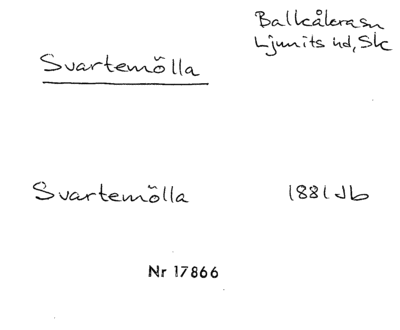 Balkåkra sn
Ljunits hd, Sk
Svartemölla
Svartemölla 1881 Jb
Nr 17866